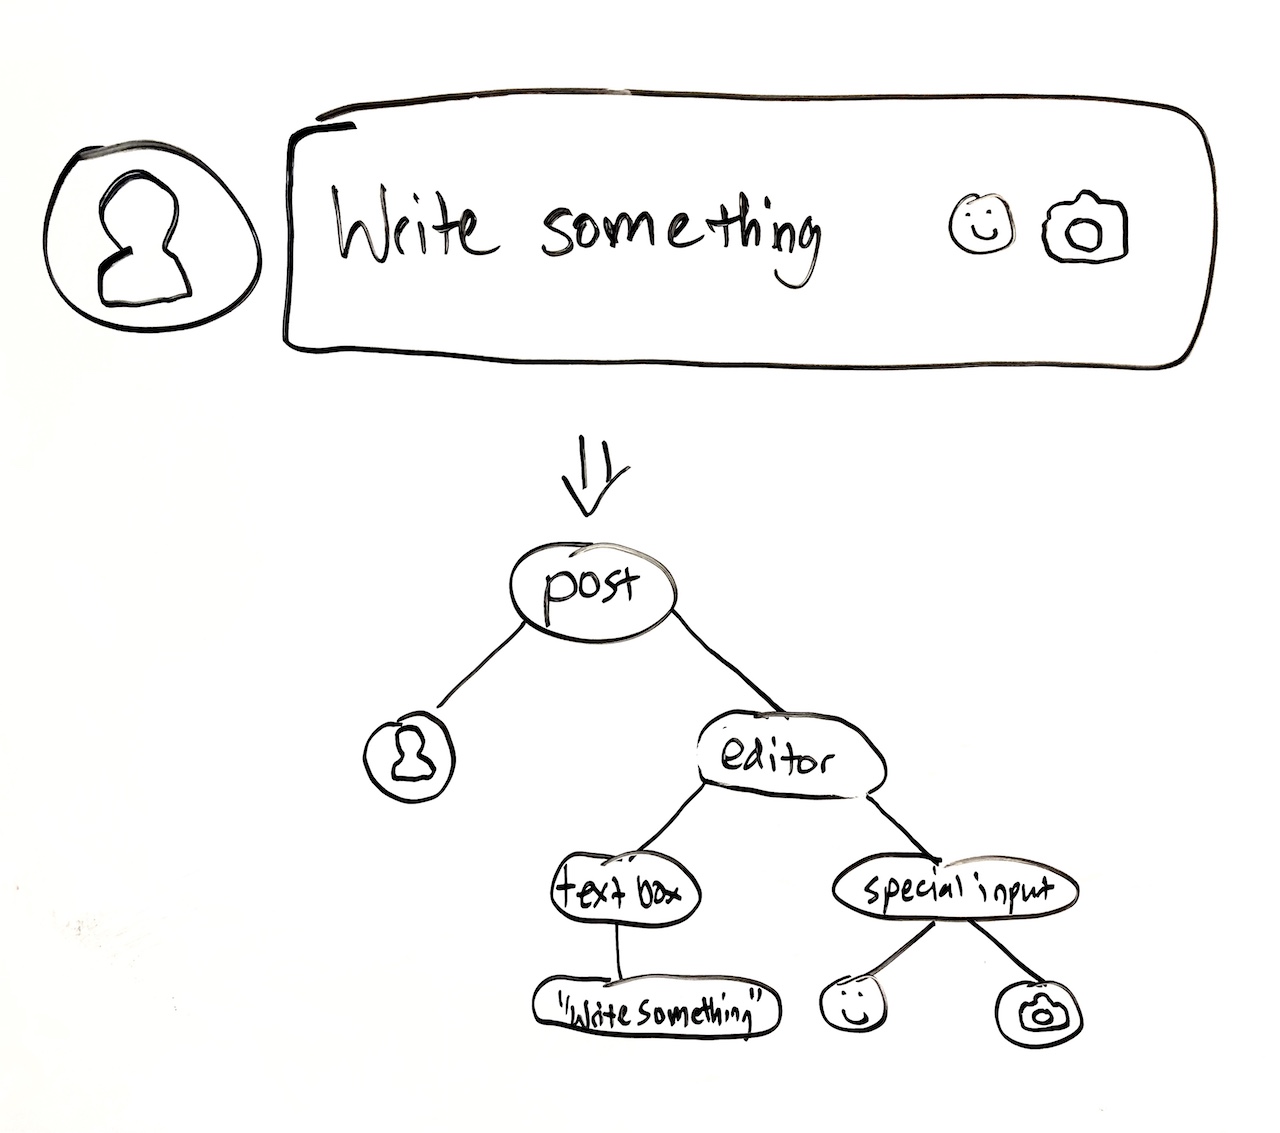 Write something
post
editor
text box
special input
"Write Something"